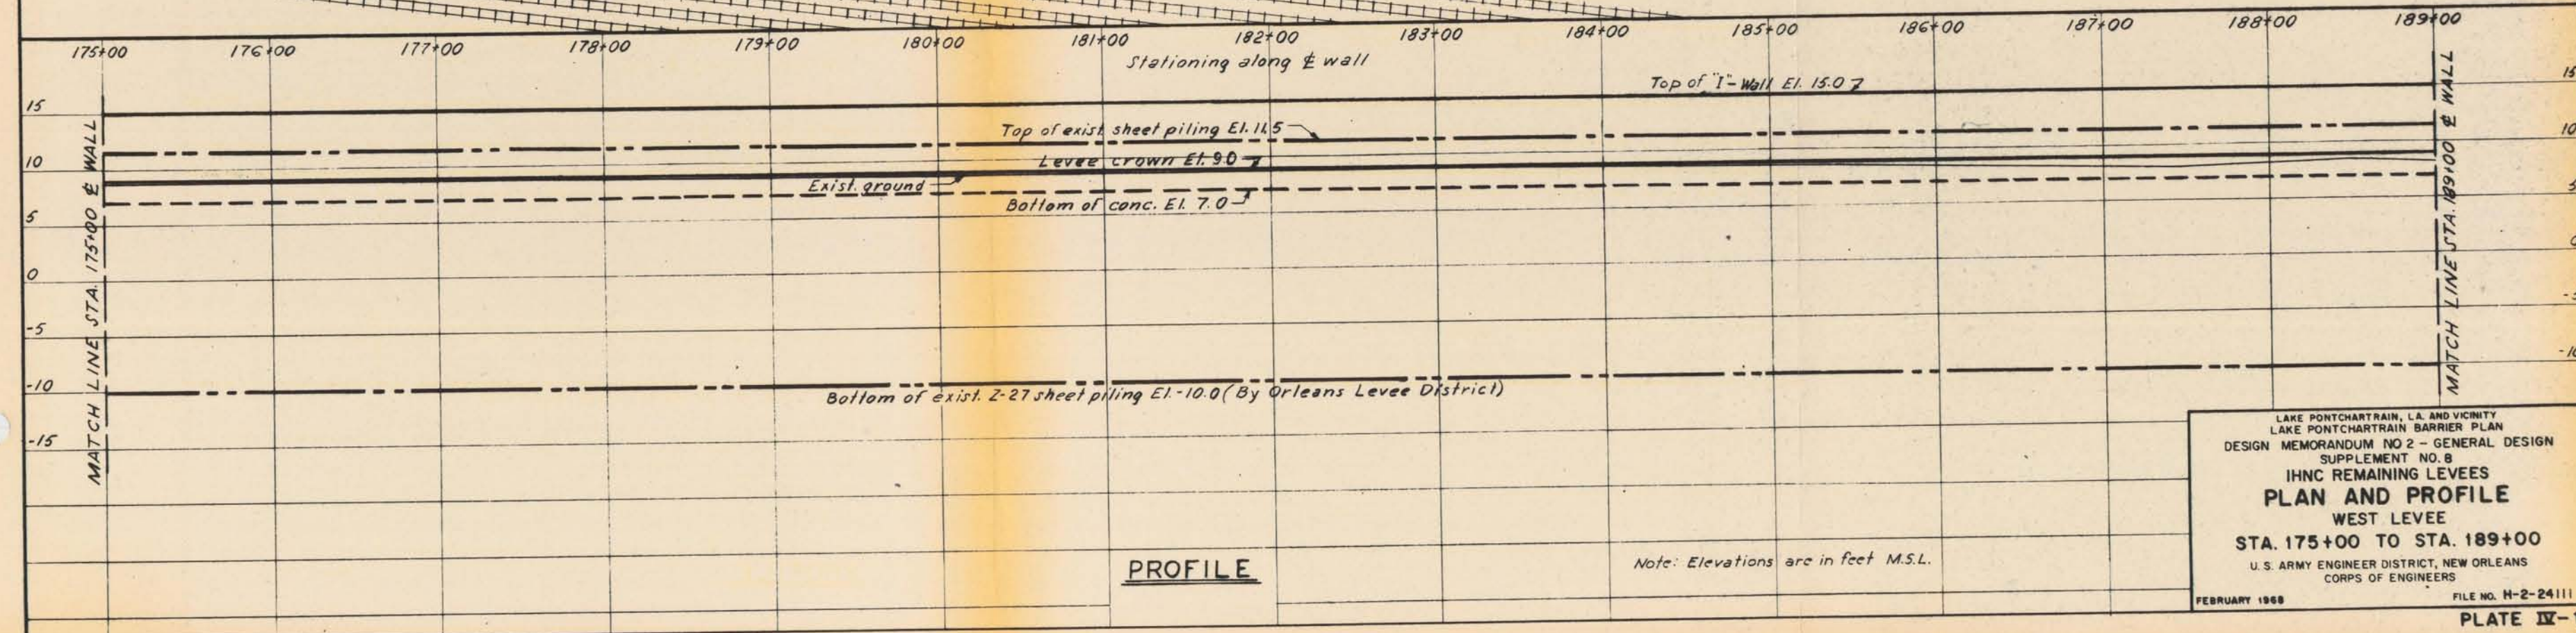 175+00 176+00 177+00 178+00 179+00 180+00 181+00 182+00 183+00 184+00 185+00 186+00 187+00 188+00 189+00
Stationing along ℄ wall
Top of "I"-Wall El. 15.0
15
15
Top of exist. sheet piling El. 11.5
10
10
Levee crown El. 9.0
Exist. ground
5
5
Bottom of conc. El. 7.0
0
-5
-10
Bottom of exist. Z-27 sheet piling El. -10.0 (By Orleans Levee District)
-15
MATCH LINE STA. 175+00 ℄ WALL
MATCH LINE STA. 189+00 ℄ WALL
PROFILE
Note: Elevations are in feet M.S.L.
LAKE PONTCHARTRAIN, LA. AND VICINITY
LAKE PONTCHARTRAIN BARRIER PLAN
DESIGN MEMORANDUM NO 2 - GENERAL DESIGN
SUPPLEMENT NO. 8
IHNC REMAINING LEVEES
PLAN AND PROFILE
WEST LEVEE
STA. 175+00 TO STA. 189+00
U. S. ARMY ENGINEER DISTRICT, NEW ORLEANS
CORPS OF ENGINEERS
FEBRUARY 1968
FILE NO. H-2-24111
PLATE IV-